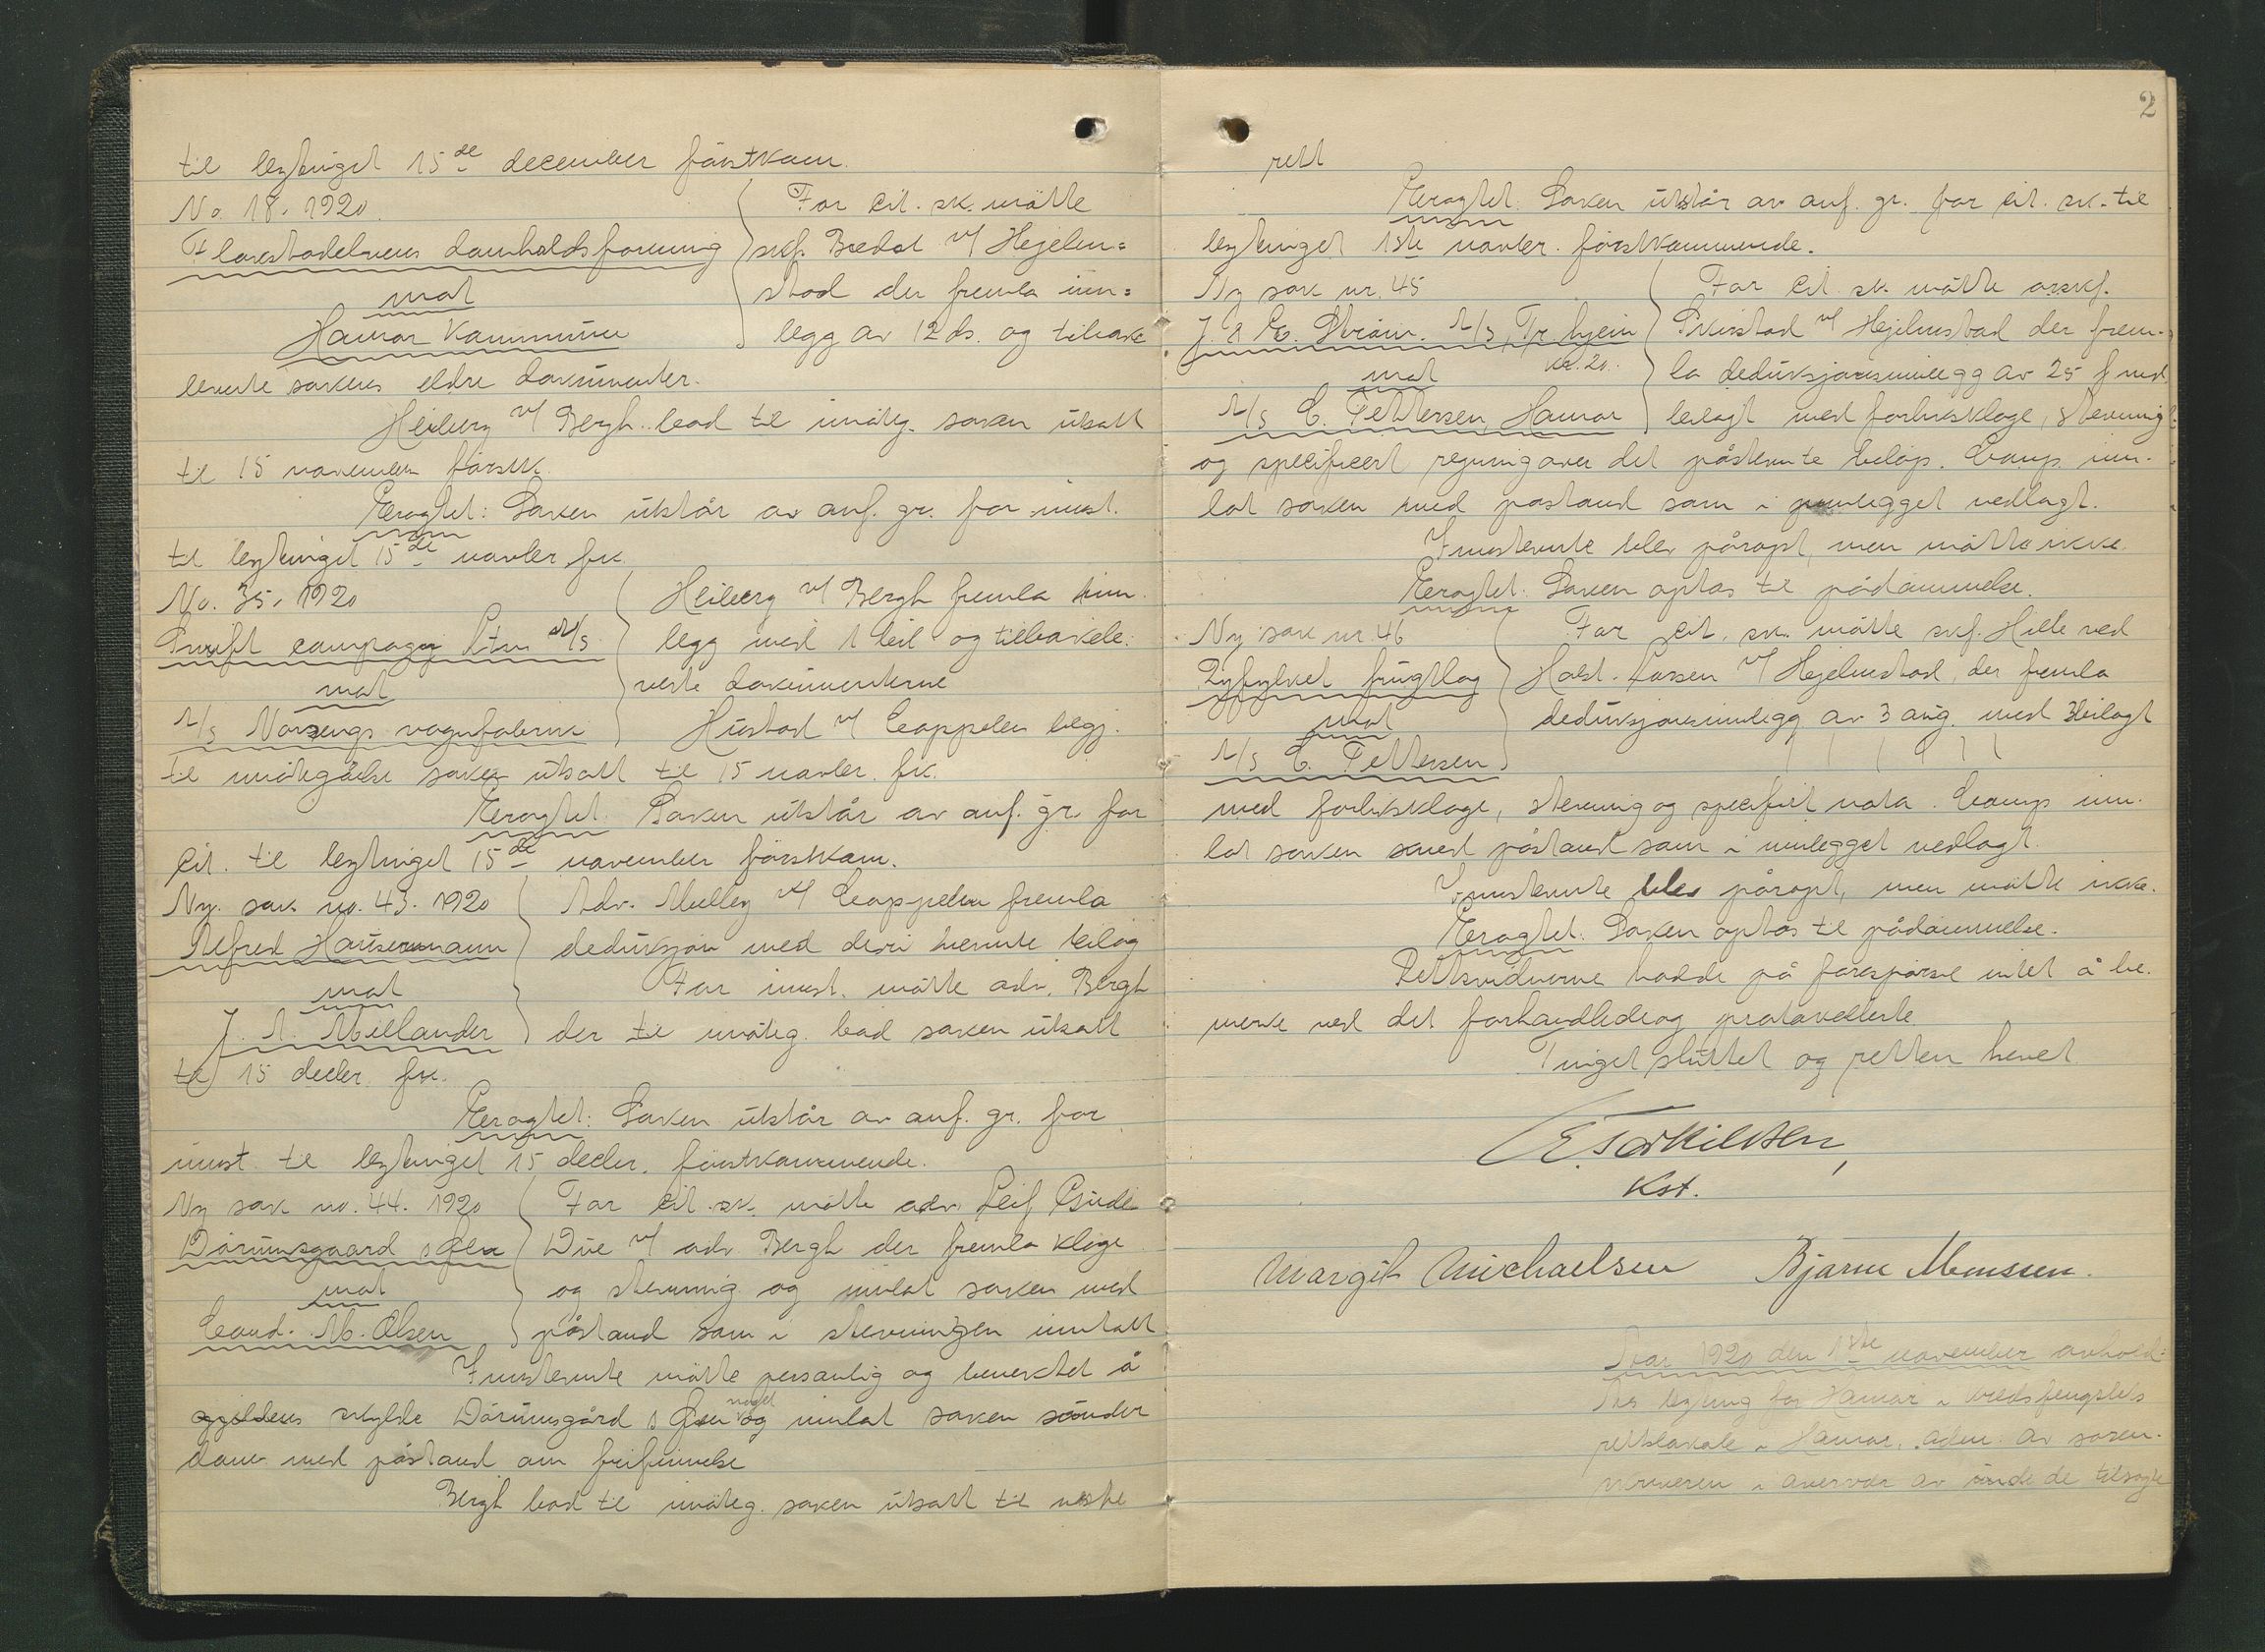 til bytinget 15de december förstkom.
No. 18. 1920.
Flakstadelvens damholdsforening
mot
Hamar kommune
For cit. sk. mötte
skf. Bredal v/ Hejelm=
stad der fremla inn=
legg av 12 ds. og tilbake
leverte sakens eldre dokumenter.
Heiberg v/ Bergh bad til imöteg. saken utsatt
til 15 november förstk.
Eragtet: Saken utstår av anf. gr. for innst.
til bytinget 15de novbr. fk.
No. 35. 1920
Swift company Ltm A/S
mot
A/S Norsengs vognfabrik
Heiberg v/ Bergh fremla inn
legg med 1 beil og tilbakele.
verte dokumenterne
Hustad v/ Cappelen begj.
til imötegåelse saken utsatt til 15 novbr. fk.
Eragtet: Saken utstår av anf. gr. for
cit. til bytinget 15de november förstkom.
Ny. sak no. 43. 1920
Alfred Hausermann
mot
J. A. Mellander
Adv. Melley v/ Cappelen fremla
deduksjon med deri nevnte beilag
For innst. mötte adv. Bergh
der til imöteg. bad saken utsatt
til 15 decbr. fk.
Eragtet: Saken utstår av anf. gr. for
innst. til bytinget 15 decbr. förstkommende.
Ny sak no. 44. 1920
Dörumsgaard s Øen
mot
Cand. M. Olsen
For cit. sk. mötte adv. Leif Gude
Due v/ adv Bergh der fremla klage
og stevning og innlot saken med
påstand som i stevningen inntatt
Innstevnte mötte personlig og benektet å
skylde Dörumsgård s Øen noget og innlot saken sönder
dom med påstand om frifinnelse
Bergh bad til imöteg. saken utsatt til neste
2
rett
Eragtet: Saken utstår av anf. gr. for cit. sk. til
bytinget 1ste novbr. förstkommende.
Ny sak nr. 45
J. & E. Ström. A/S, Tr.hjem
mot
A/S C. Pettersen, Hamar
For cit. sk. mötte orskf.
v/ Hejelmstad der frem-
la deduksjonsinnlegg av 25 f med
beilagt med forliksklage, stevning
og specificert regning over det påstevnte belöp. Comp. inn-
lot saken med påstand som i innlegget nedlagt.
Innstevnte blev påropt, men mötte ikke.
Eragtet: Saken optas til pådömmelse.
Ny sak nr. 46
Ryfylket frugtlag
mot
A/S C. Pettersen
For cit. sk. mötte skf. Helle ved
Holst-Larsen v/ Hejelmstad, der fremla
deduksjonsinnlegg av 3 aug. med 3 bilagt
med forliksklage, stevning og specifiert nota. Comp inn-
lot saken med påstand som i innlegget nedlagt.
Innstevnte blev påropt, men mötte ikke.
Eragtet: Saken optas til pådömmelse.
Rettsvidnerne hadde på forespörsel intet å be-
merke ved det forhandlede og protokollerte
Tinget sluttet og retten hevet
E. Torkildsen,
Kst.
Margit Michaelsen Bjarne Monssen.
Aar 1920 den 1ste november avhold-
tes byting for Hamar i kredsfengslets
rettslokale i Hamar. adm. av soren-
skriveren i overvær av undt. de tilsagte